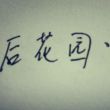 后花园.